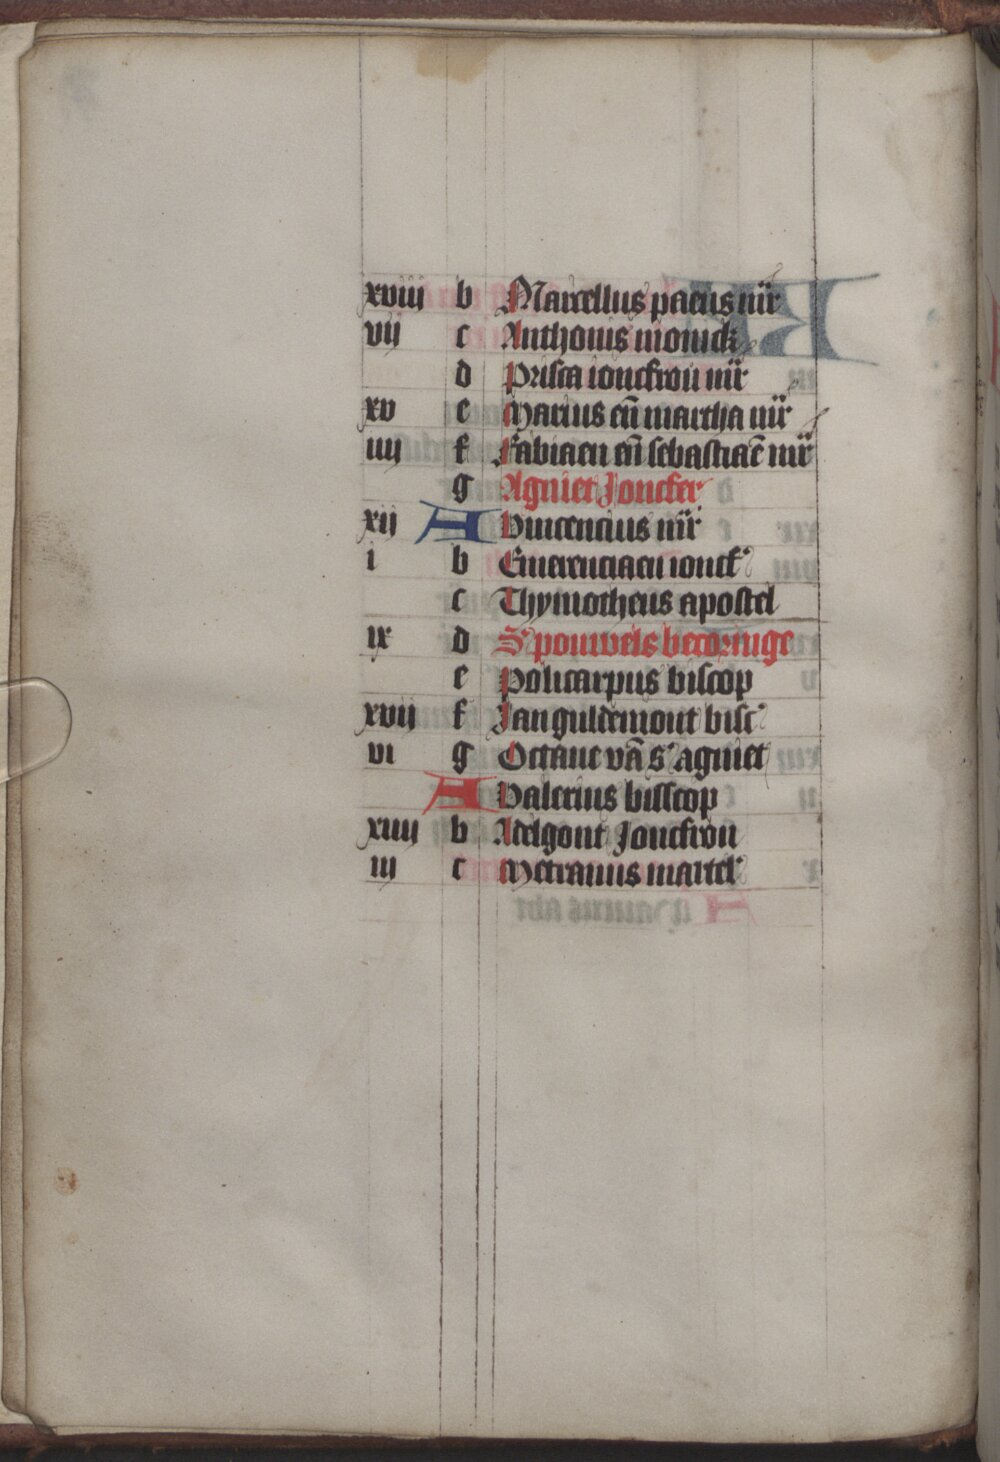 xviii b Marcellus paeus mr̃
vij c Anthonis monick
d Prisca ionckfrou mr̃
xv e Marius eñ martha mr̃
iiij f Fabiaen eñ sebastiaẽ mr̃
g Agniet Joncfer
xij A Vincencius mr̃
i b Emerenciaen ionck
c Thymotheus apostel
ix d S pouwels beceringe
e Policarpus biscop
xvij f Jan guldemont bisc
vi g Octaue vã s agniet
A Valerius bisscop
xiiij b Adelgont Jonckfrou
iij c Metranus martel